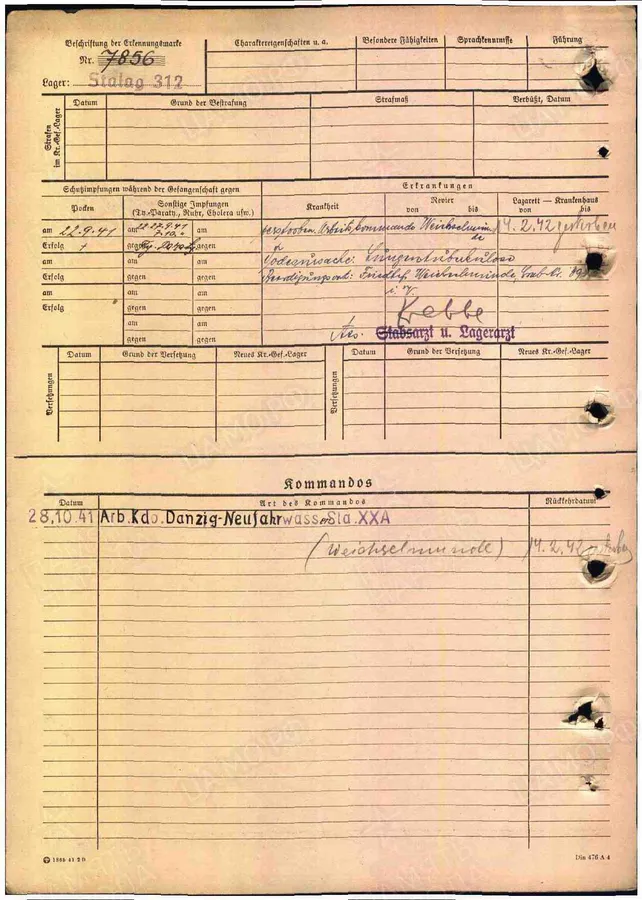 Beschriftung der Erkennungsmarke
Nr. 7856
Lager: Stalag 312
Charaktereigenschaften u. a.
Besondere Fähigkeiten
Sprachkenntnisse
Führung
Strafen im Kr.-Gef.-Lager
Datum
Grund der Bestrafung
Strafmaß
Verbüßt, Datum
Schutzimpfungen während der Gefangenschaft gegen
Erkrankungen
Pocken
Sonstige Impfungen
(Ty.-Paraty., Ruhr, Cholera usw.)
Krankheit
Revier
von bis
Lazarett — Krankenhaus
von bis
am 22.9.41 am am
Erfolg + gegen gegen
am am am
Erfolg gegen gegen
am am am
Erfolg gegen gegen
am am
gegen gegen
verstorben Arbeitskommando Weichselmünde 14.2.42 gestorben
Todesursache: Lungentuberkulose
Beerdigungsort: Friedhof Weichselmünde, Grab Nr.
Stabsarzt u. Lagerarzt
Versetzungen
Datum
Grund der Versetzung
Neues Kr.-Gef.-Lager
Versetzungen
Datum
Grund der Versetzung
Neues Kr.-Gef.-Lager
Kommandos
Datum
Art des Kommandos
Rückkehrdatum
28.10.41 Arb.Kdo.Danzig-Neufahrwasser Sta.XXA
(Weichselmünde) 14.2.42
Din 476 A 4